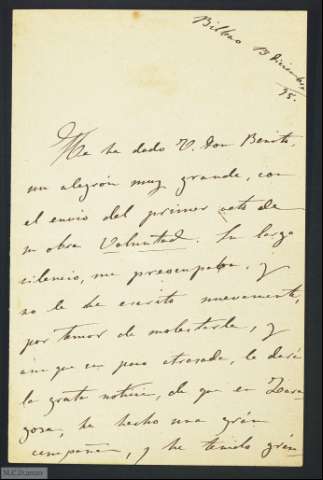 Bilbao 19 diciembre
/95.
Me ha dado V. Don Benito,
un alegrón muy grande, con
el envio del primer acto de
su obra Voluntad. Su largo
silencio, me preocupaba, y
no le he escrito nuevamente,
por temor de molestarle, y
aunque un poco atrasada, le daré
la grata noticia, de que en Zara-
goza, he hecho una gran
campaña, y he tenido gran